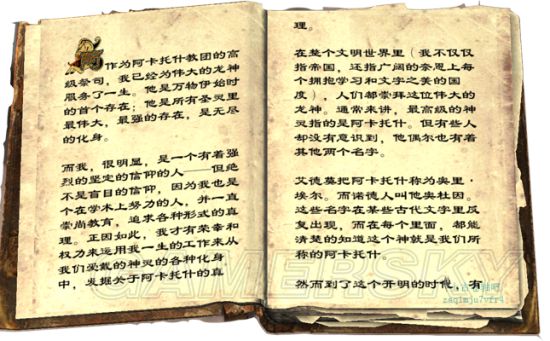 作为阿卡托什教团的高
级祭司，我已经为伟大的龙神
服务了一生。他是万物伊始时
的首个存在；他是所有圣灵里
最伟大，最强的存在，是无尽
的化身。
而我，很明显，是一个有着强
烈的坚定的信仰的人——但绝
不是盲目的信仰，因为我也是
个在学术上努力的人，并一直
崇尚教育，追求各种形式的真
理。正因如此，我才有荣幸和
权力来运用我一生的工作来从
我们爱戴的神灵的各种化身
中，发掘关于阿卡托什的真
理。
在整个文明世界里（我不仅仅
指帝国，还指广阔的奈恩上每
个拥抱学习和文字之美的国
度），人们都崇拜这位伟大的
龙神。通常来讲，最高级的神
灵指的是阿卡托什。但有些人
却没有意识到，他偶尔也有着
其他两个名字。
艾德莫把阿卡托什称为奥里·
埃尔。而诺德人叫他奥杜因。
这些名字在某些古代文字里反
复出现，而在每个里面，都能
清楚的知道这个神就是我们所
称的阿卡托什。
然而到了这个开明的时代，有
GAMERSKY
zaq1mju7vfr4